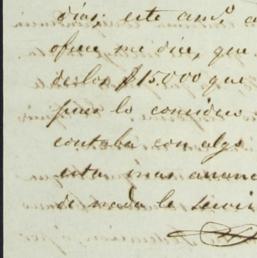 dias; este am.º a
ofrece me dice, que
de los $15.000 que
pues lo considero
contaba con algo
estas mas avanc
de nada le servir